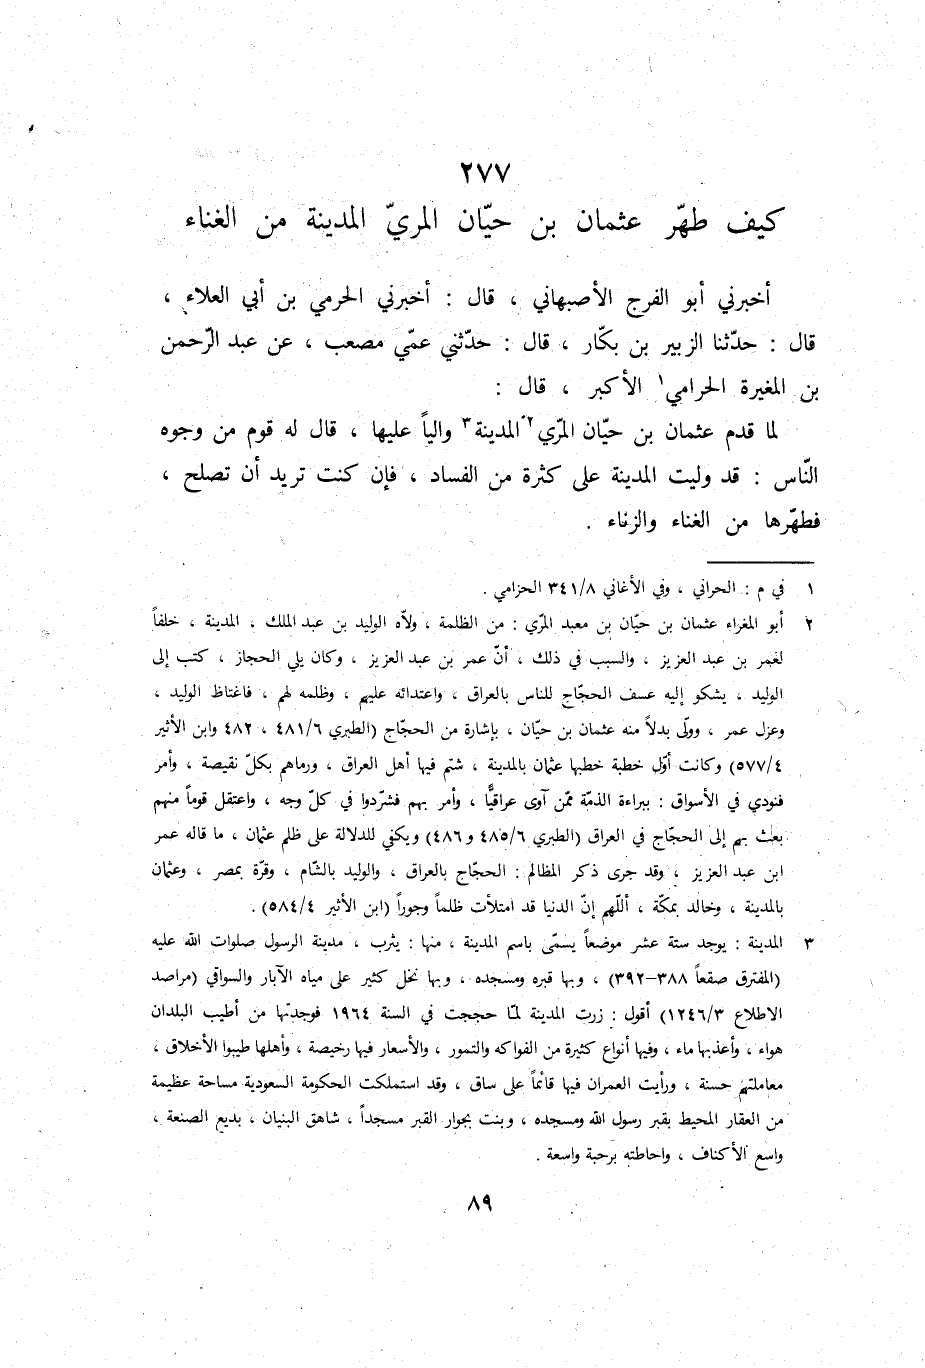 ٢٧٧
كيف طهّر عثمان بن حيّان المريّ المدينة من الغناء
أخبرني أبو الفرج الأصبهاني ، قال : أخبرني الحرمي بن أبي العلاء ،
قال : حدّثنا الزبير بن بكّار ، قال : حدّثني عمّي مصعب ، عن عبد الرّحمن
بن المغيرة الحرامي١ الأكبر ، قال :
لما قدم عثمان بن حيّان المرّي٢ المدينة٣ والياً عليها ، قال له قوم من وجوه
النّاس : قد وليت المدينة على كثرة من الفساد ، فإن كنت تريد أن تصلح ،
فطهّرها من الغناء والزناء .
١ في م : الحراني ، وفي الأغاني ٣٤١/٨ الحزامي .
٢ أبو المغراء عثمان بن حيّان بن معبد المرّي : من الظلمة ، ولاّه الوليد بن عبد الملك ، المدينة ، خلفاً
لعمر بن عبد العزيز ، والسبب في ذلك ، أنّ عمر بن عبد العزيز ، وكان يلي الحجاز ، كتب إلى
الوليد ، يشكو إليه عسف الحجّاج للناس بالعراق ، واعتدائه عليهم ، وظلمه لهم ، فاغتاظ الوليد ،
وعزل عمر ، وولّى بدلاً منه عثمان بن حيّان ، بإشارة من الحجّاج (الطبري ٤٨١/٦ ، ٤٨٢ وابن الأثير
٥٧٧/٤) وكانت أوّل خطبة خطبها عثمان بالمدينة ، شتم فيها أهل العراق ، ورماهم بكلّ نقيصة ، وأمر
فنودي في الأسواق : ببراءة الذمّة ممّن آوى عراقيًّا ، وأمر بهم فشرّدوا في كلّ وجه ، واعتقل قوماً منهم
بعث بهم إلى الحجّاج في العراق (الطبري ٤٨٥/٦ و ٤٨٦) ويكفي للدلالة على ظلم عثمان ، ما قاله عمر
ابن عبد العزيز ، وقد جرى ذكر المظالم : الحجّاج بالعراق ، والوليد بالشّام ، وقرّة بمصر ، وعثمان
بالمدينة ، وخالد بمكّة ، أللّهم إنّ الدنيا قد امتلأت ظلماً وجوراً (ابن الأثير ٥٨٤/٤) .
٣ المدينة : يوجد ستة عشر موضعاً يسمّى باسم المدينة ، منها : يثرب ، مدينة الرسول صلوات الله عليه
(المفترق صقعاً ٣٨٨–٣٩٢) ، وبها قبره ومسجده ، وبها نخل كثير على مياه الآبار والسواقي (مراصد
الاطلاع ١٢٤٦/٣) أقول : زرت المدينة لمّا حججت في السنة ١٩٦٤ فوجدتها من أطيب البلدان
هواء ، وأعذبها ماء ، وفيها أنواع كثيرة من الفواكه والتمور ، والأسعار فيها رخيصة ، وأهلها طيبوا الأخلاق ،
معاملتهم حسنة ، ورأيت العمران فيها قائماً على ساق ، وقد استملكت الحكومة السعودية مساحة عظيمة
من العقار المحيط بقبر رسول الله ومسجده ، وبنت بجوار القبر مسجداً ، شاهق البنيان ، بديع الصنعة ،
واسع الأكناف ، واحاطته برحبة واسعة .
٨٩